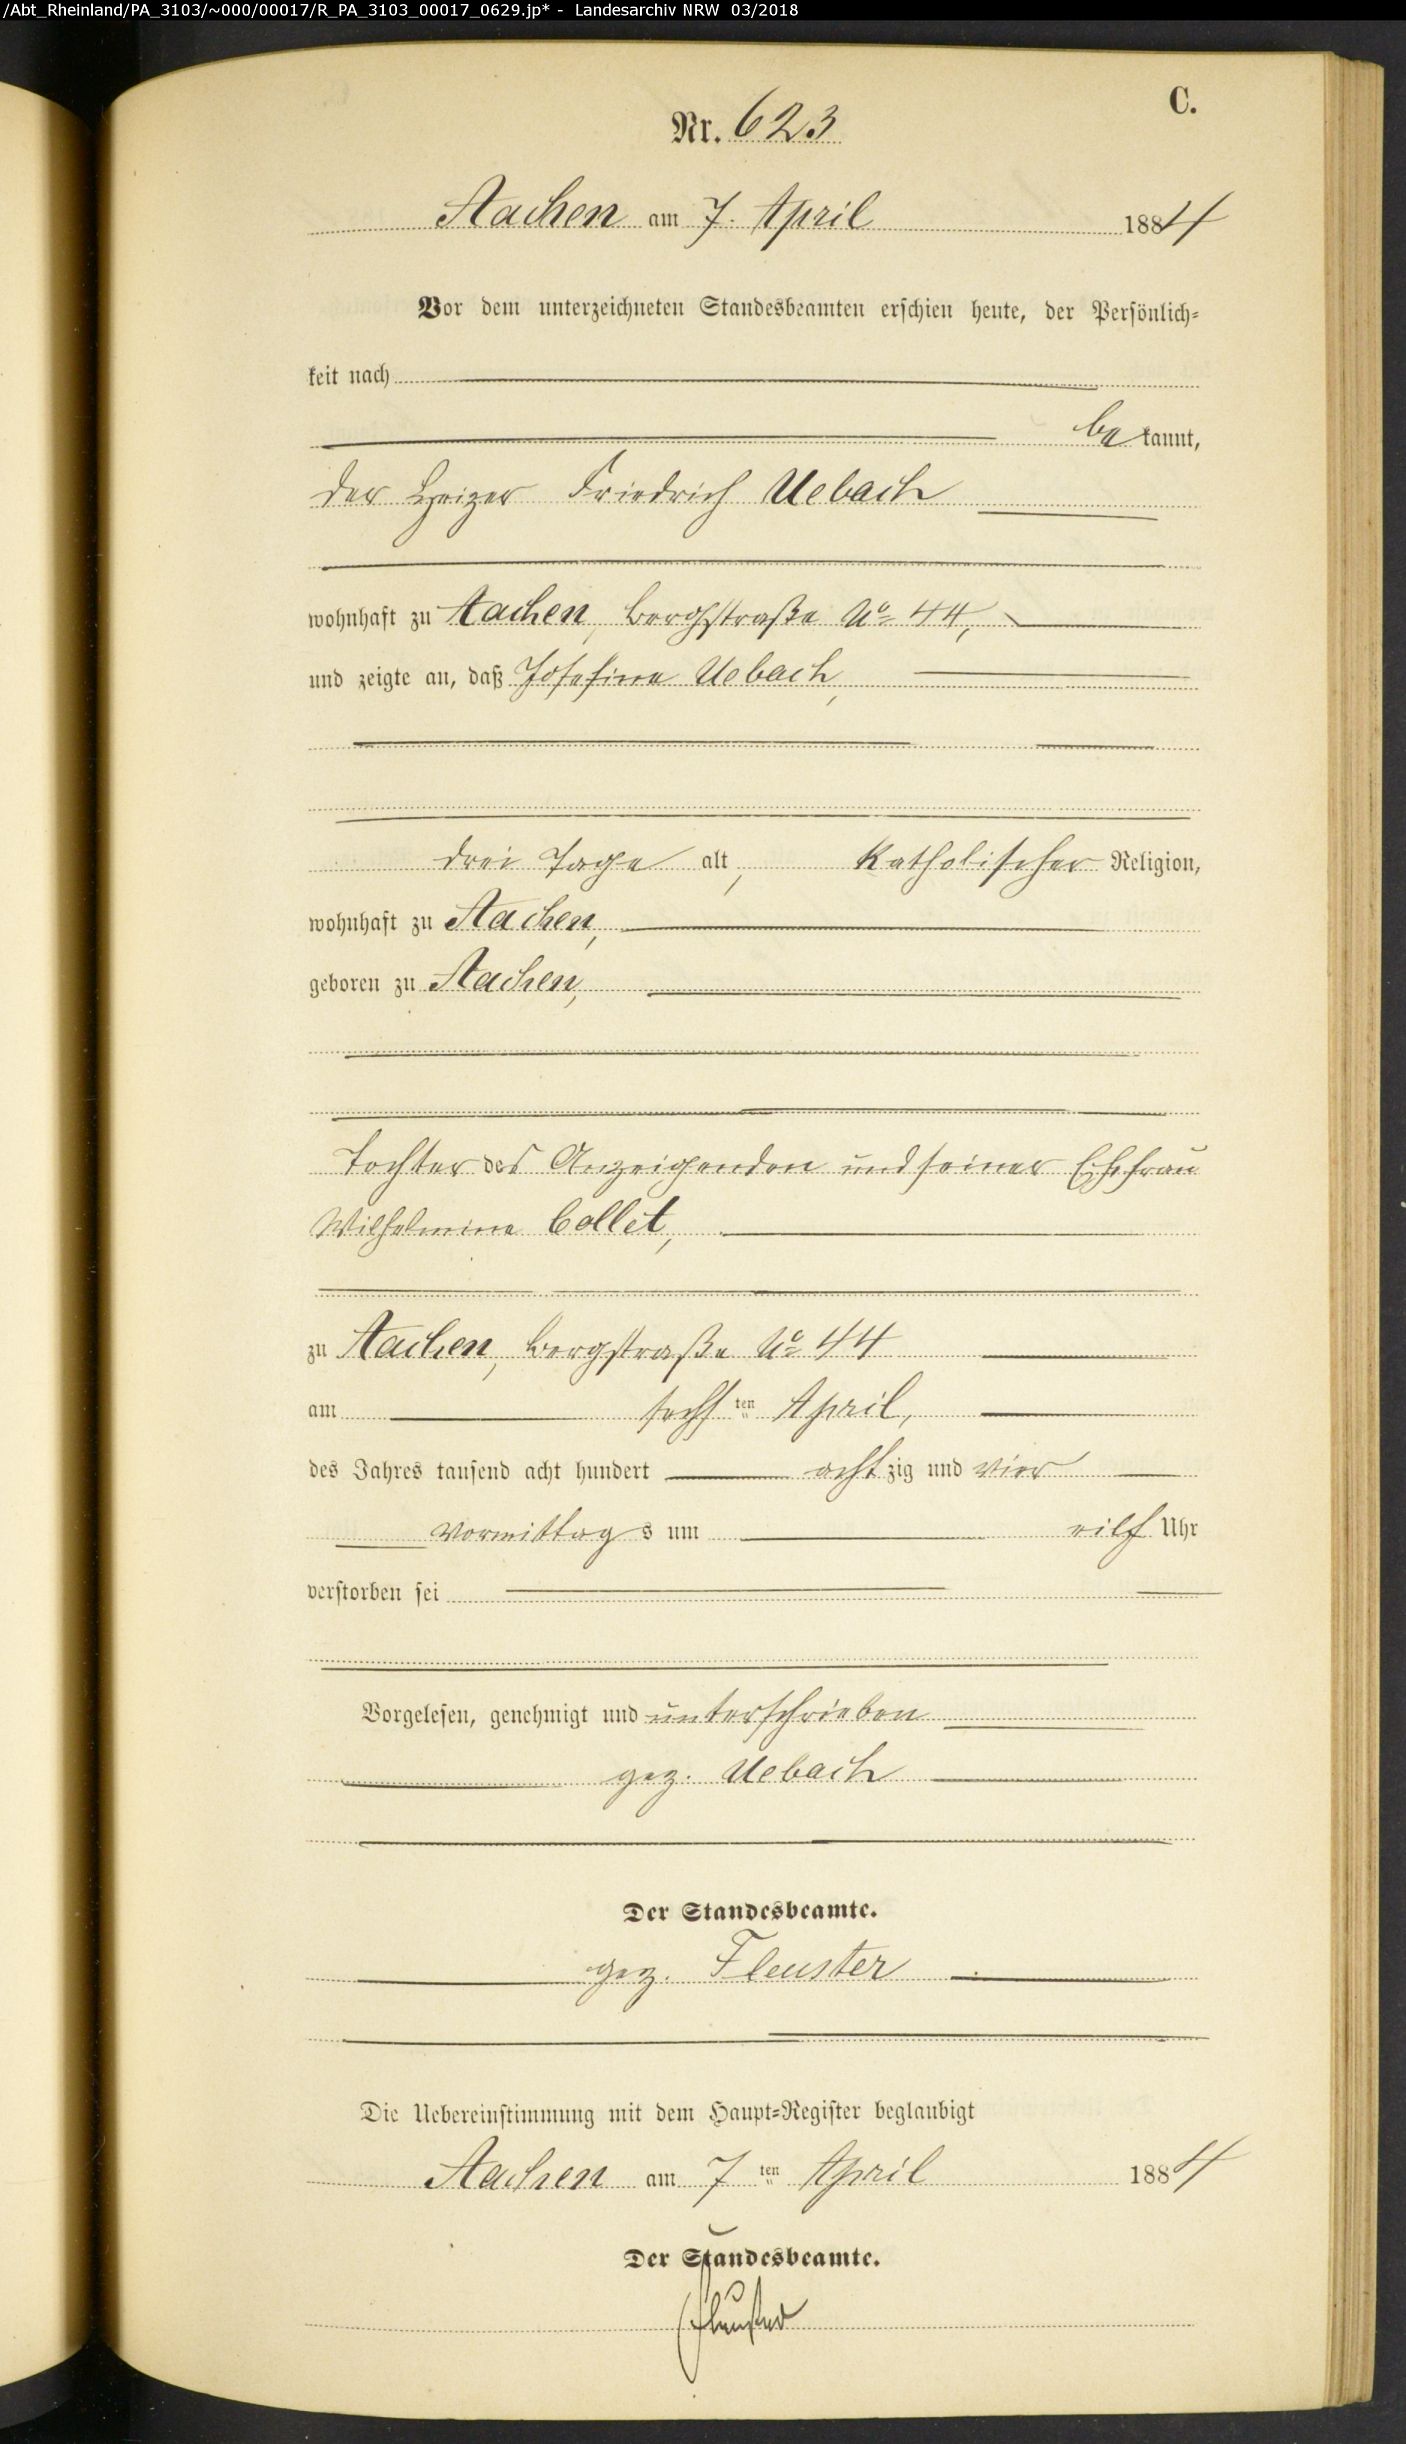 /Abt_Rheinland/PA_3103/~000/00017/R_PA_3103_00017_0629.jp* - Landesarchiv NRW 03/2018
C.
Nr. 623
Aachen am 7. April 1884
Vor dem unterzeichneten Standesbeamten erschien heute, der Persönlich-
keit nach
be kannt,
der Heizer Friedrich Uebach
wohnhaft zu Aachen, Bergstraße No 44,
und zeigte an, daß Josefina Uebach,
drei Tage alt, katholischer Religion,
wohnhaft zu Aachen,
geboren zu Aachen,
Tochter des Anzeigenden und seiner Ehefrau
Wilhelmina Collet,
zu Aachen, Bergstraße No 44
am sechs ten April,
des Jahres tausend acht hundert acht zig und vier
Vormittag s um eilf Uhr
verstorben sei
Vorgelesen, genehmigt und unterschrieben
gez. Uebach
Der Standesbeamte.
gez. Fleuster
Die Uebereinstimmung mit dem Haupt-Register beglaubigt
Aachen am 7 ten April 1884
Der Standesbeamte.
Fleuster